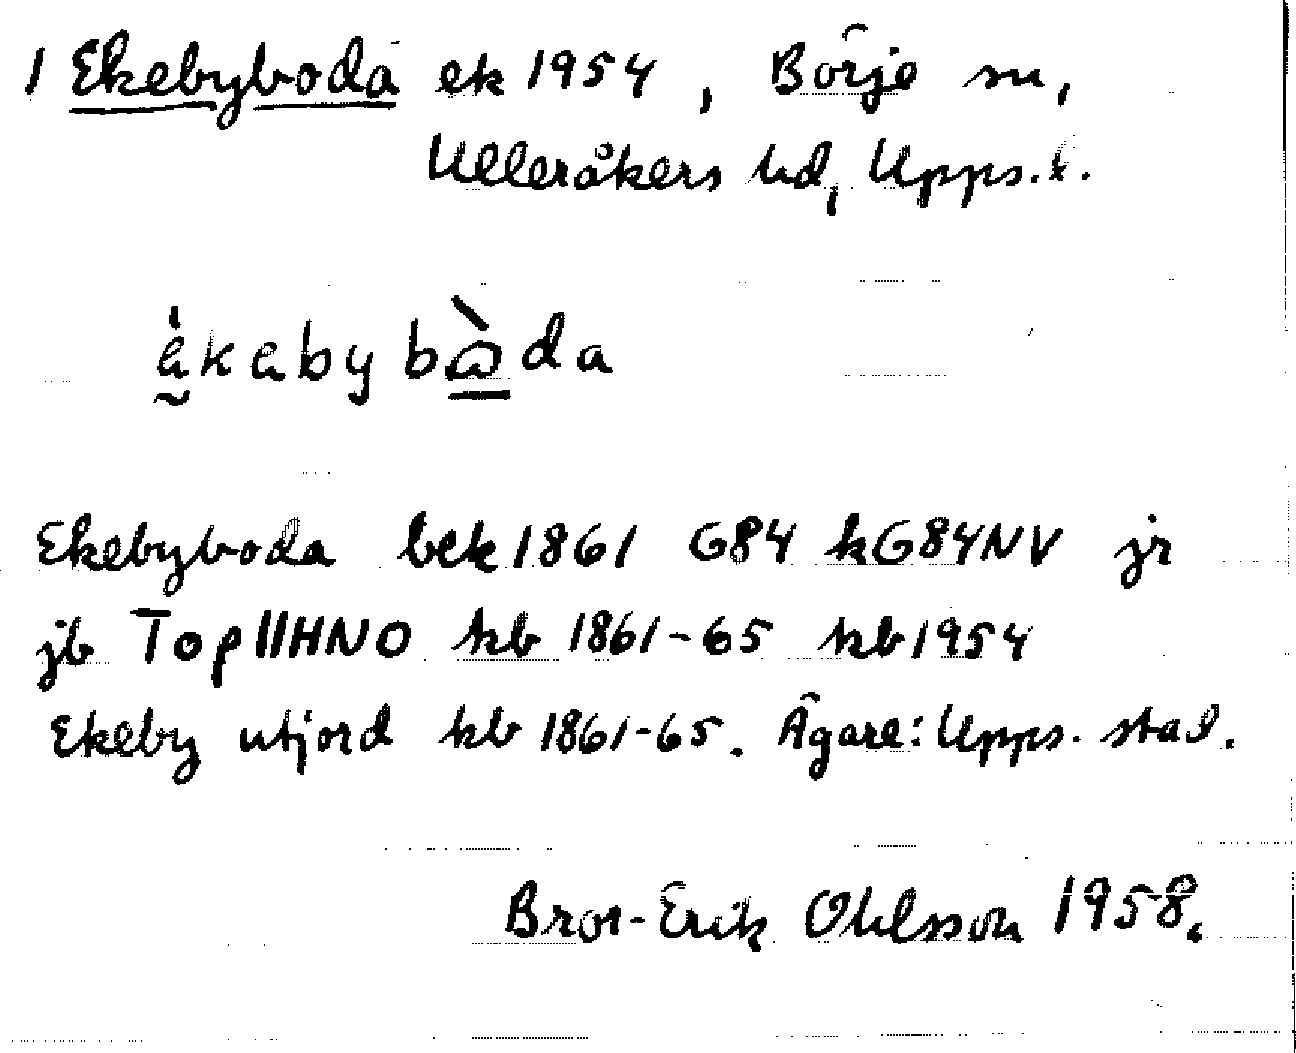 1 Ekebyboda ek 1954, Börje sn,
Ulleråkers hd, Upps. l.
ekebyboda
Ekebyboda bek 1861 G84 kG84NV jr
jb TopIIHNO kb 1861-65 kb 1954
Ekeby utjord kb 1861-65. Ägare: Upps. stad.
Bror-Erik Ohlsson 1958.